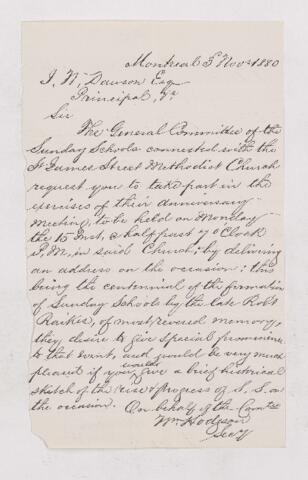 Montreal 5 Novr 1880
J. W. Dawson Esq
Principal &c
Sir
The General Committee of the
Sunday Schools connected with the
St James Street Methodist Church
request you to take part in the
exercises of their anniversary
Meeting, to be held on Monday
the 15 Inst, @ half past 7 oCloak
P.M, in said Church; by delivering
an address on the occasion: this
being the centennial of the formation
of Sunday Schools by the late Robt
Raikes, of most revered memory,
they desire to give special prominence
to that event, and would be very much
pleased if you would give a brief historical
sketch of the rise & progress of S. S. on
the occasion. On behalf of the Comtee
Wm Hodgson
Secy